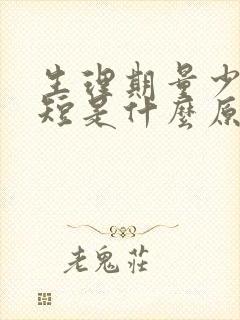 生理期量少
短是什麼原
老鬼莊